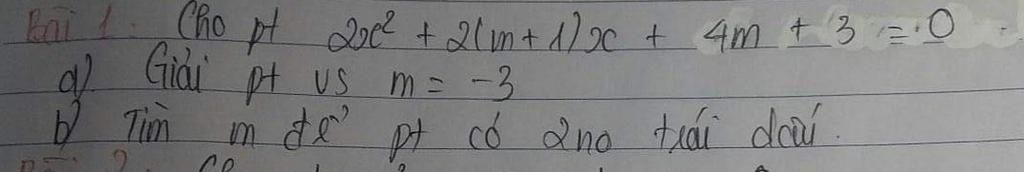 Bài 1: Cho pt 2x² + 2(m + 1)x + 4m + 3 = 0
a) Giải pt vs m = -3
b) Tìm m để pt có 2no trái dấu.